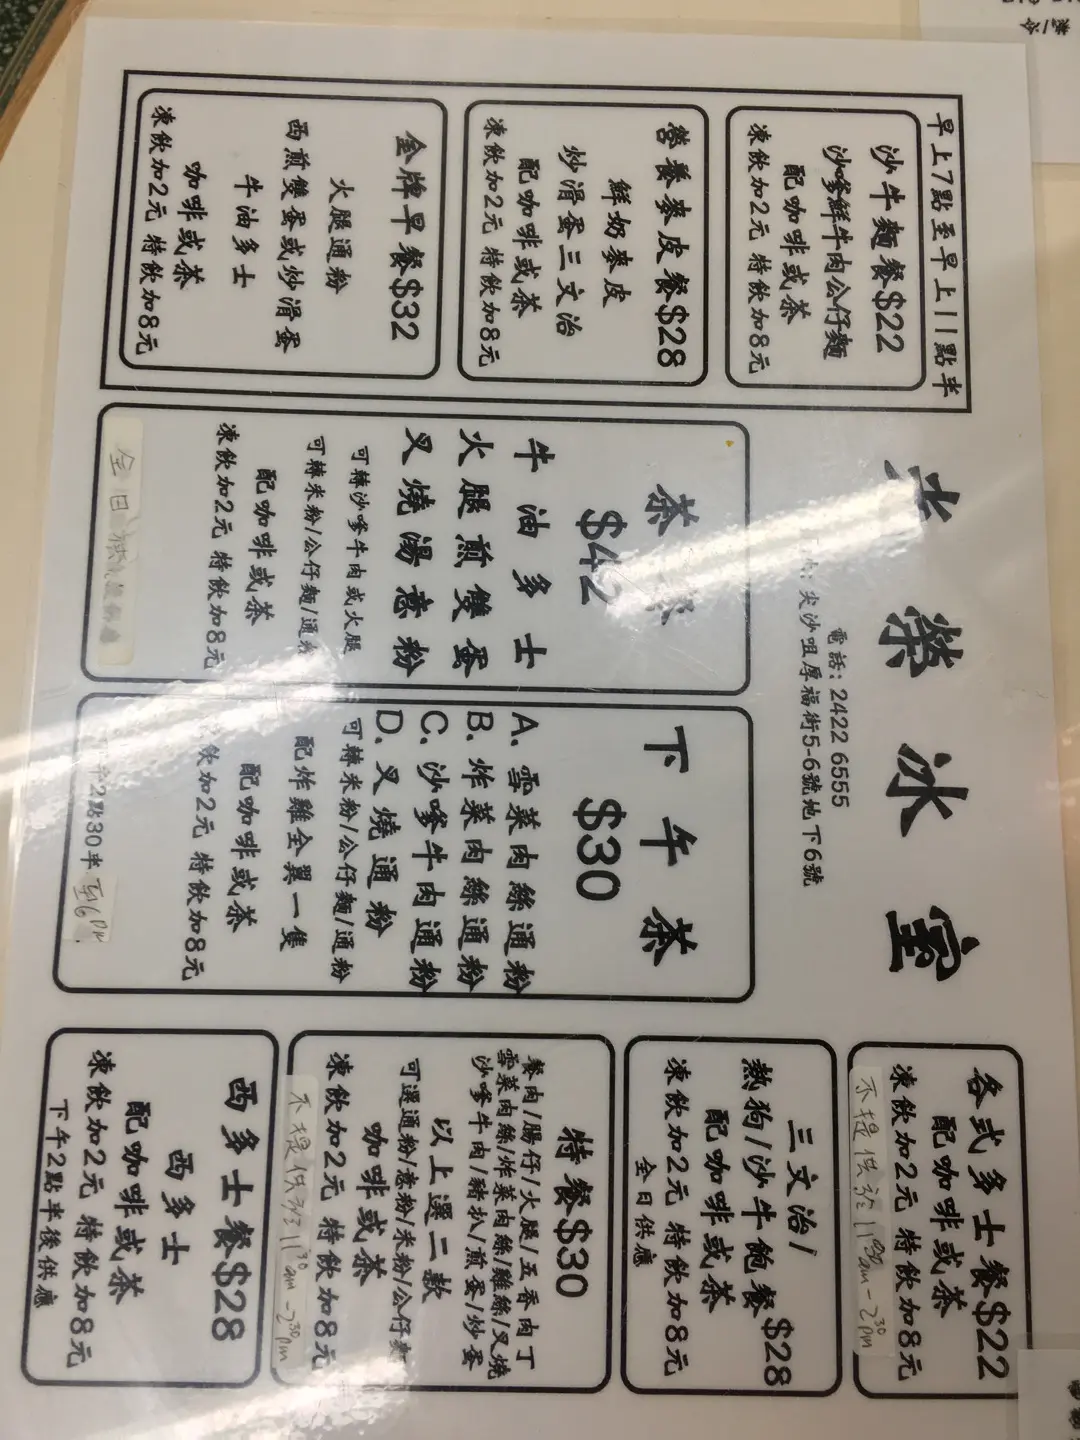 榮冰室
電話: 2422 6555
尖沙咀厚福街5-6號地下6號
早上7點至早上11點半
沙牛麵餐$22
沙爹鮮牛肉公仔麵
配咖啡或茶
凍飲加2元 特飲加8元
營養麥皮餐$28
鮮奶麥皮
炒滑蛋三文治
配咖啡或茶
凍飲加2元 特飲加8元
金牌早餐$32
火腿通粉
西煎雙蛋或炒滑蛋
牛油多士
咖啡或茶
凍飲加2元 特飲加8元
茶
$42
牛油多士
火腿煎雙蛋
叉燒湯意粉
可轉沙爹牛肉或火腿
可轉米粉/公仔麵/通粉
配咖啡或茶
凍飲加2元 特飲加8元
全日
下午茶
$30
A. 雪菜肉絲通粉
B. 炸菜肉絲通粉
C. 沙爹牛肉通粉
D. 叉燒通粉
可轉米粉/公仔麵/通粉
配炸雞全翼一隻
配咖啡或茶
飲加2元 特飲加8元
2點30半至6pm
各式多士餐$22
配咖啡或茶
凍飲加2元 特飲加8元
不提供於11:30am-2:30pm
三文治/
熱狗/沙牛飽餐$28
配咖啡或茶
凍飲加2元 特飲加8元
全日供應
特餐$30
餐肉/腸仔/火腿/五香肉丁
雪菜肉絲/炸菜肉絲/雞絲/叉燒
沙爹牛肉/豬扒/煎蛋/炒蛋
以上選二款
可選通粉/意粉/米粉/公仔麵
咖啡或茶
凍飲加2元 特飲加8元
不提供於11:30am-2:30pm
西多士餐$28
西多士
配咖啡或茶
凍飲加2元 特飲加8元
下午2點半後供應